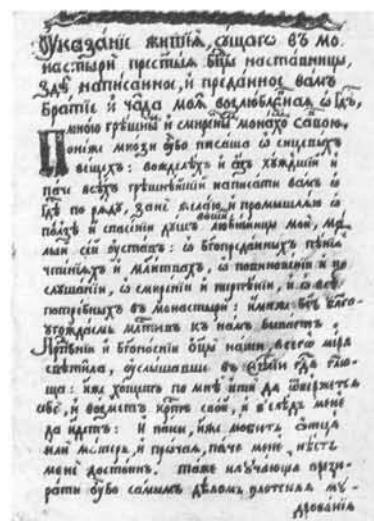 Ѹказанїе житїѧ, сꙋщагѡ въ мо-
настыри престы́ѧ бц҃ы наставницы,
здѣ написанное, и преданное вамъ
братїе и чѧда моѧ возлюбленаѧ ѡ гд҃ѣ,
мною грѣшны и смирены монахо савою.
Понеже мнози ꙋбо писаша ѡ сицевыхъ
вещехъ: вожделѣхъ и азъ хꙋждшїи и
паче всѣхъ грѣшнѣйшїи написати вамъ ѡ
гд҃ѣ по рѧдꙋ, зане желаю и промышлѧю ѡ
ползѣ и спасенїи дꙋшъ вашихъ любимицы мои, ма-
лыи сеи ꙋставъ: ѡ бг҃опреданныхъ пѣнїи
чтенїѧхъ и мл҃итвахъ, ѡ повиновенїи и по-
слꙋшанїи, ѡ смиренїи и терпѣнїи, и ѡ всѣ
потребныхъ въ монастыри: имиже бг҃ъ благо-
ꙋгождаемь мл҃тивъ къ намъ бываетъ.
и бг҃оноснїи ѡц҃ы наши всего мїра
свѣтила, ꙋслышавше въ гд҃а гл҃ю-
ща: иже хощетъ по мнѣ ити да ѿвержетсѧ
себе, и возметъ крт҃ъ свои, и въ слѣдъ мене
да идетъ: и паки, иже любитъ ѿтца
или матерь, и прочаѧ, паче мене, нѣсть
мене достоинъ. таже наꙋчающа презир-
рати ꙋбо самымъ дѣломъ плотскаѧ мꙋ-
дрованїѧ